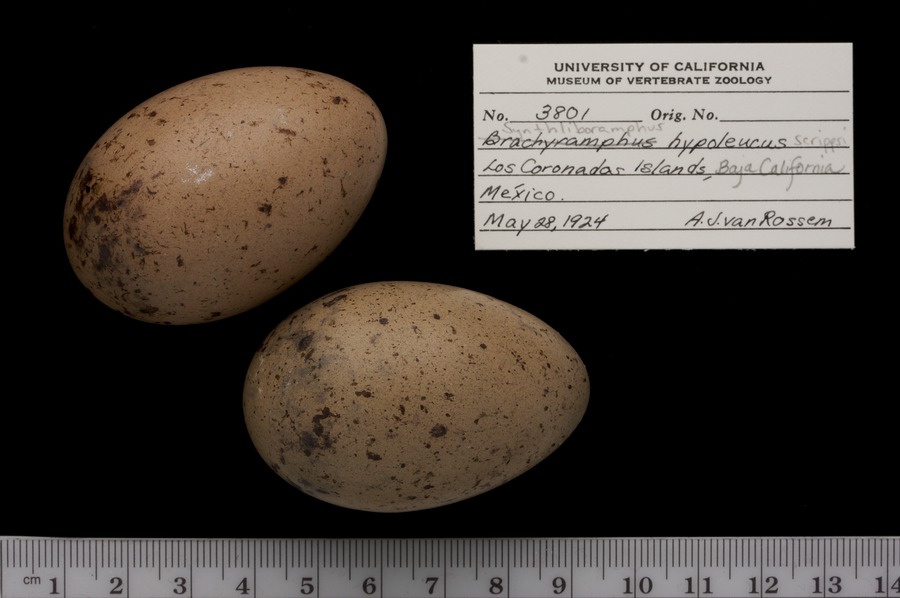 UNIVERSITY OF CALIFORNIA
MUSEUM OF VERTEBRATE ZOOLOGY
No. 3801 Orig. No.
Synthliboramphus
Brachyramphus hypoleucus scrippsi
Los Coronados Islands, Baja California
México.
May 28, 1924 A.J. van Rossem
cm 1 2 3 4 5 6 7 8 9 10 11 12 13 14